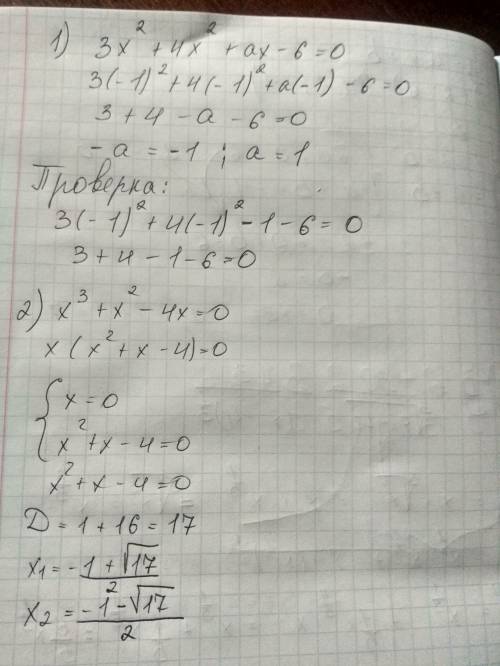 1) 3x² + 4x² + ax - 6 = 0
3(-1)² + 4(-1)² + a(-1) - 6 = 0
3 + 4 - a - 6 = 0
- a = -1 ; a = 1
Проверка:
3(-1)² + 4(-1)² - 1 - 6 = 0
3 + 4 - 1 - 6 = 0
2) x³ + x² - 4x = 0
x (x² + x - 4) = 0
{ x = 0
x² + x - 4 = 0
x² + x - 4 = 0
D = 1 + 16 = 17
x₁ = (-1 + √17) / 2
x₂ = (-1 - √17) / 2